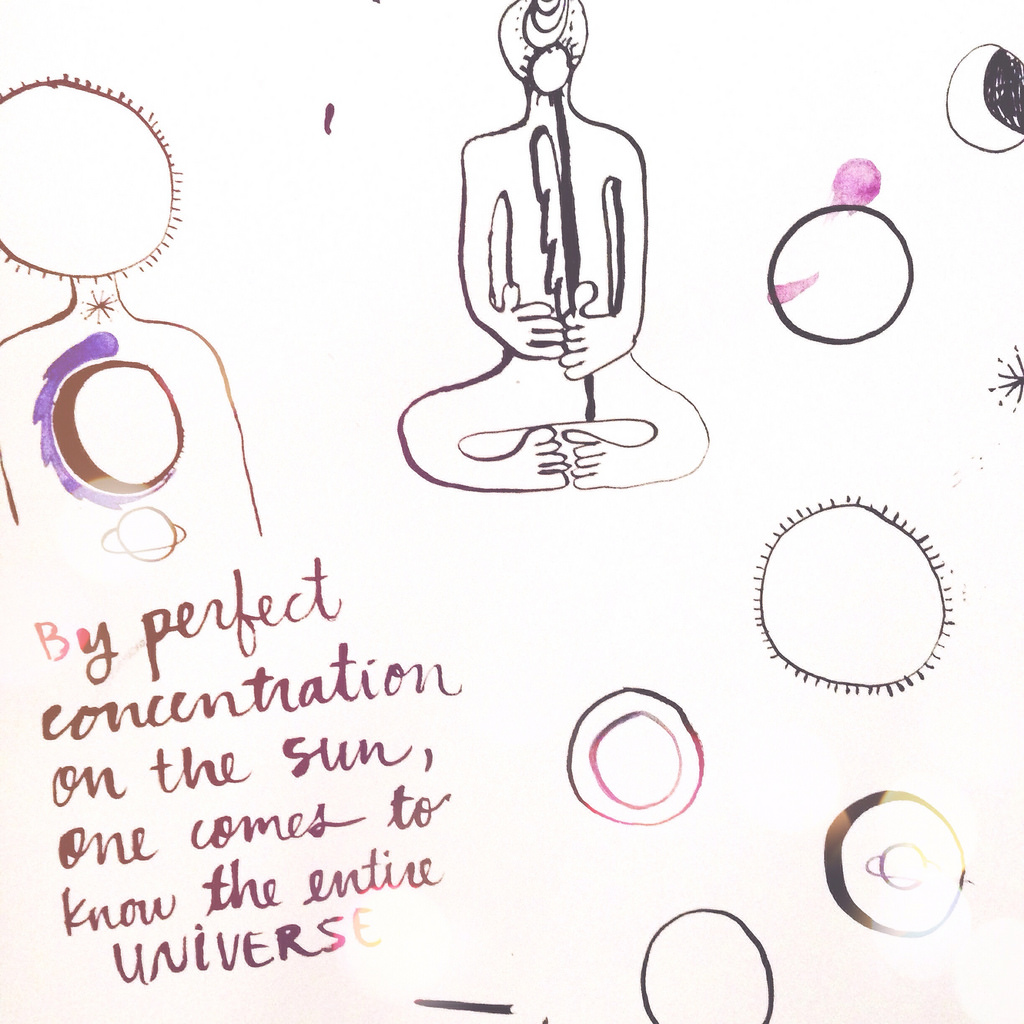 By perfect
concentration
on the sun,
one comes to
know the entire
UNIVERSE